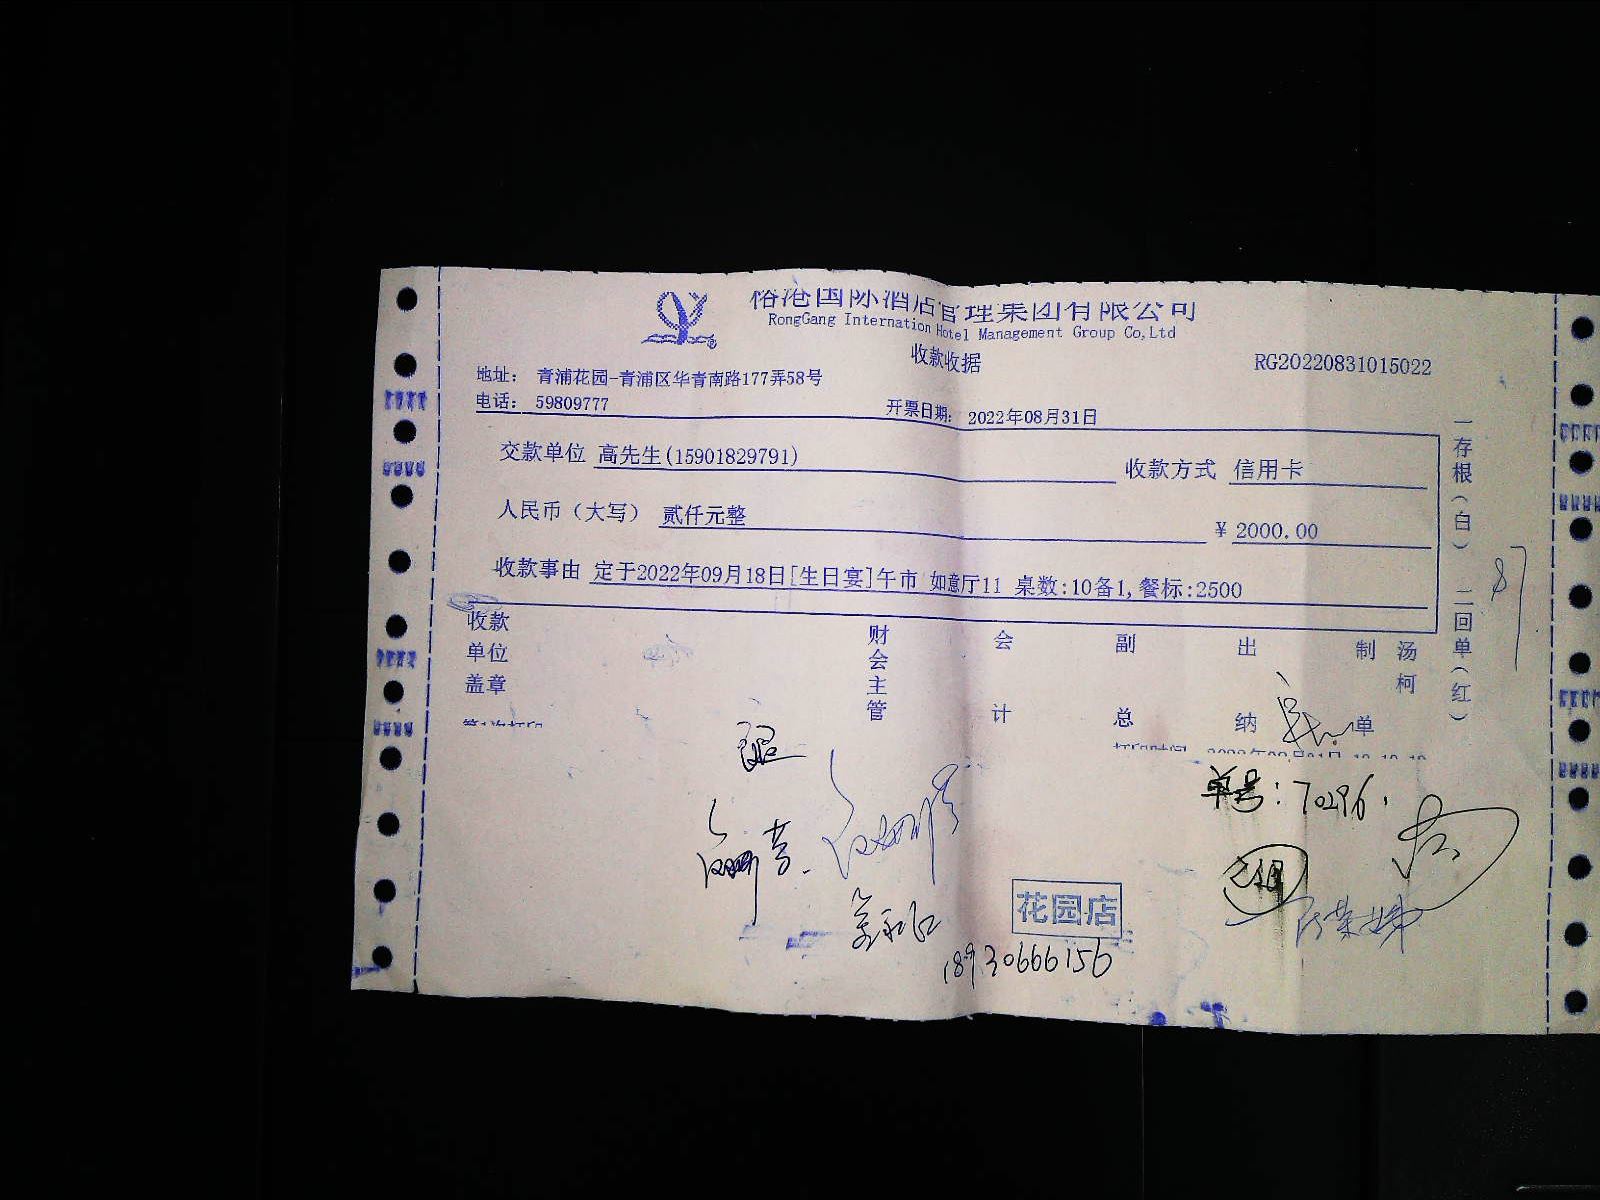 裕港国际酒店管理集团有限公司
RongGang Internation Hotel Management Group Co,Ltd
收款收据
RG20220831015022
地址： 青浦花园-青浦区华青南路177弄58号
电话： 59809777
开票日期： 2022年08月31日
交款单位 高先生(15901829791)
收款方式 信用卡
人民币（大写） 贰仟元整
¥ 2000.00
收款事由 定于2022年09月18日[生日宴]午市 如意厅11 桌数:10备1,餐标:2500
一存根（白） 二回单（红）
收款单位盖章
财会主管
会计
副总
出纳
制单
汤柯
单号：70296.
花园店
18930666156
87